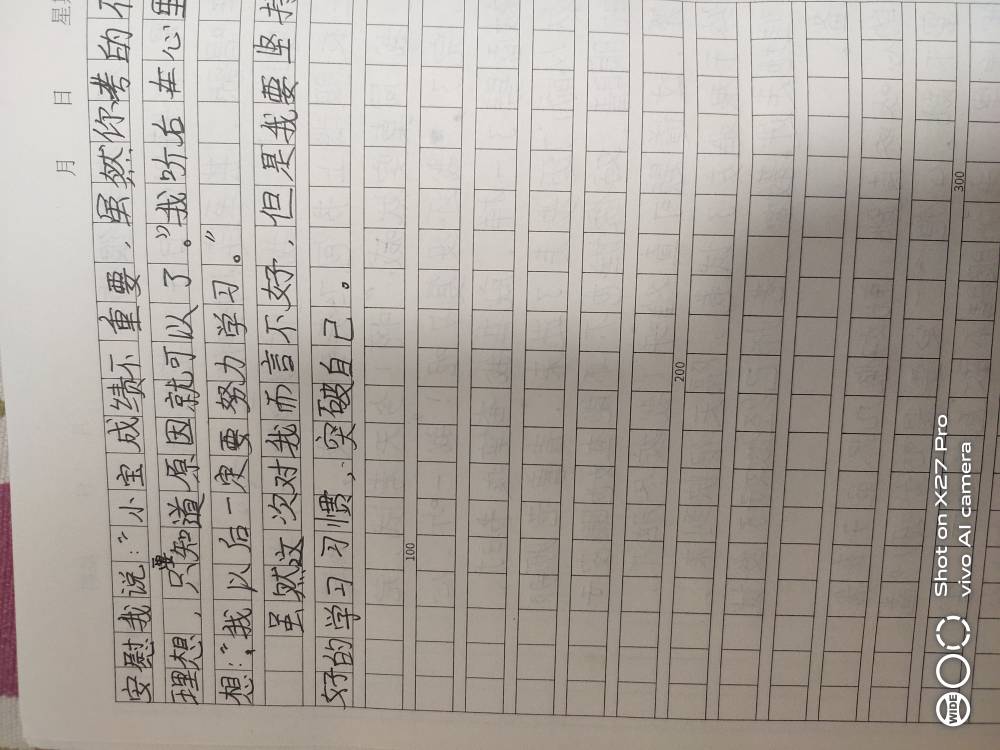 月 日 星期
安慰我说：“小宝成绩不重要，虽然你考的不
理想，只要知道原因就可以了。”我听后在心里
想：“我以后一定要努力学习。”
虽然这次对我而言不好，但是我要坚持
好的学习习惯，突破自己。
100
200
300
WIDE
Shot on X27 Pro
vivo AI camera